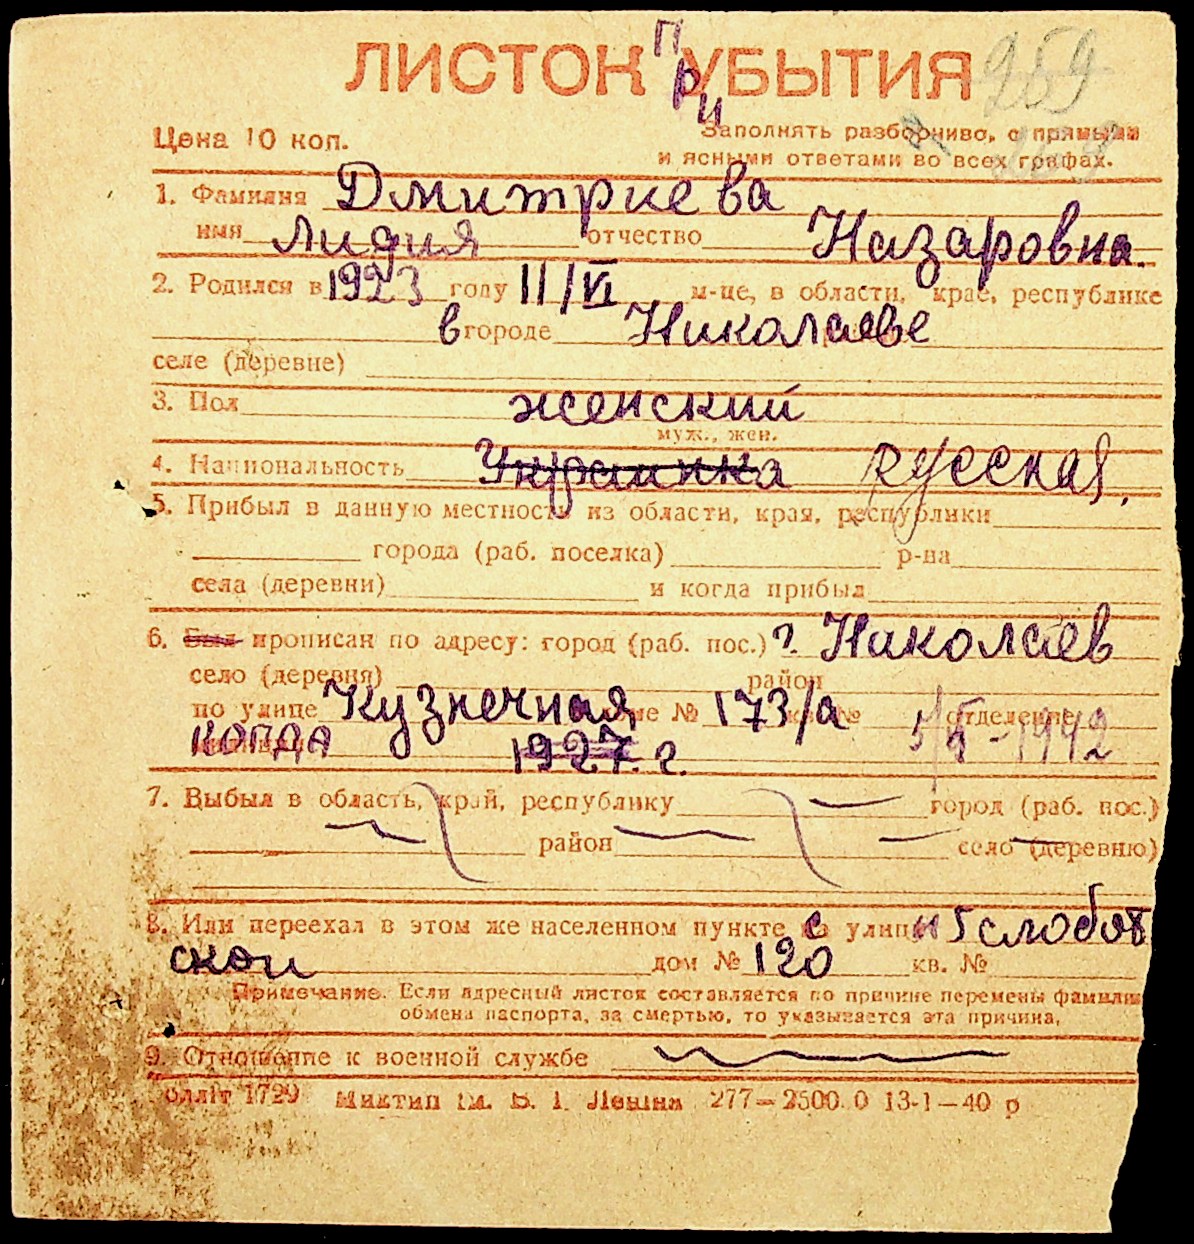 ЛИСТОК ПРИ УБЫТИЯ 259
Цена 10 коп.
Заполнять разборчиво, с прямыми
и ясными ответами во всех графах.
1. Фамилия Дмитриева
имя Лидия отчество Назаровна.
2. Родился в 1923 году 11/VI м-це, в области, крае, республике
в городе Николаеве
селе (деревне)
3. Пол женский
муж., жен.
4. Национальность Украинка русская.
5. Прибыл в данную местность из области, края, республики
города (раб. поселка) р-на
села (деревни) и когда прибыл
6. Был прописан по адресу: город (раб. пос.) г. Николаев
село (деревня) район
по улице Кузнечная доме № 173/а кв. № отделение
КОГДА 1927 г. 1942
7. Выбыл в область, край, республику город (раб. пос.)
район село (деревню)
8. Или переехал в этом же населенном пункте с улицы 5 слобот
ской дом № 120 кв. №
Примечание. Если адресный листок составляется по причине перемены фамилии
обмена паспорта, за смертью, то указывается эта причина,
9. Отношение к военной службе
олліт 1729 Миктип ім. В. І. Леніна 277—2500.0 13-1—40 р